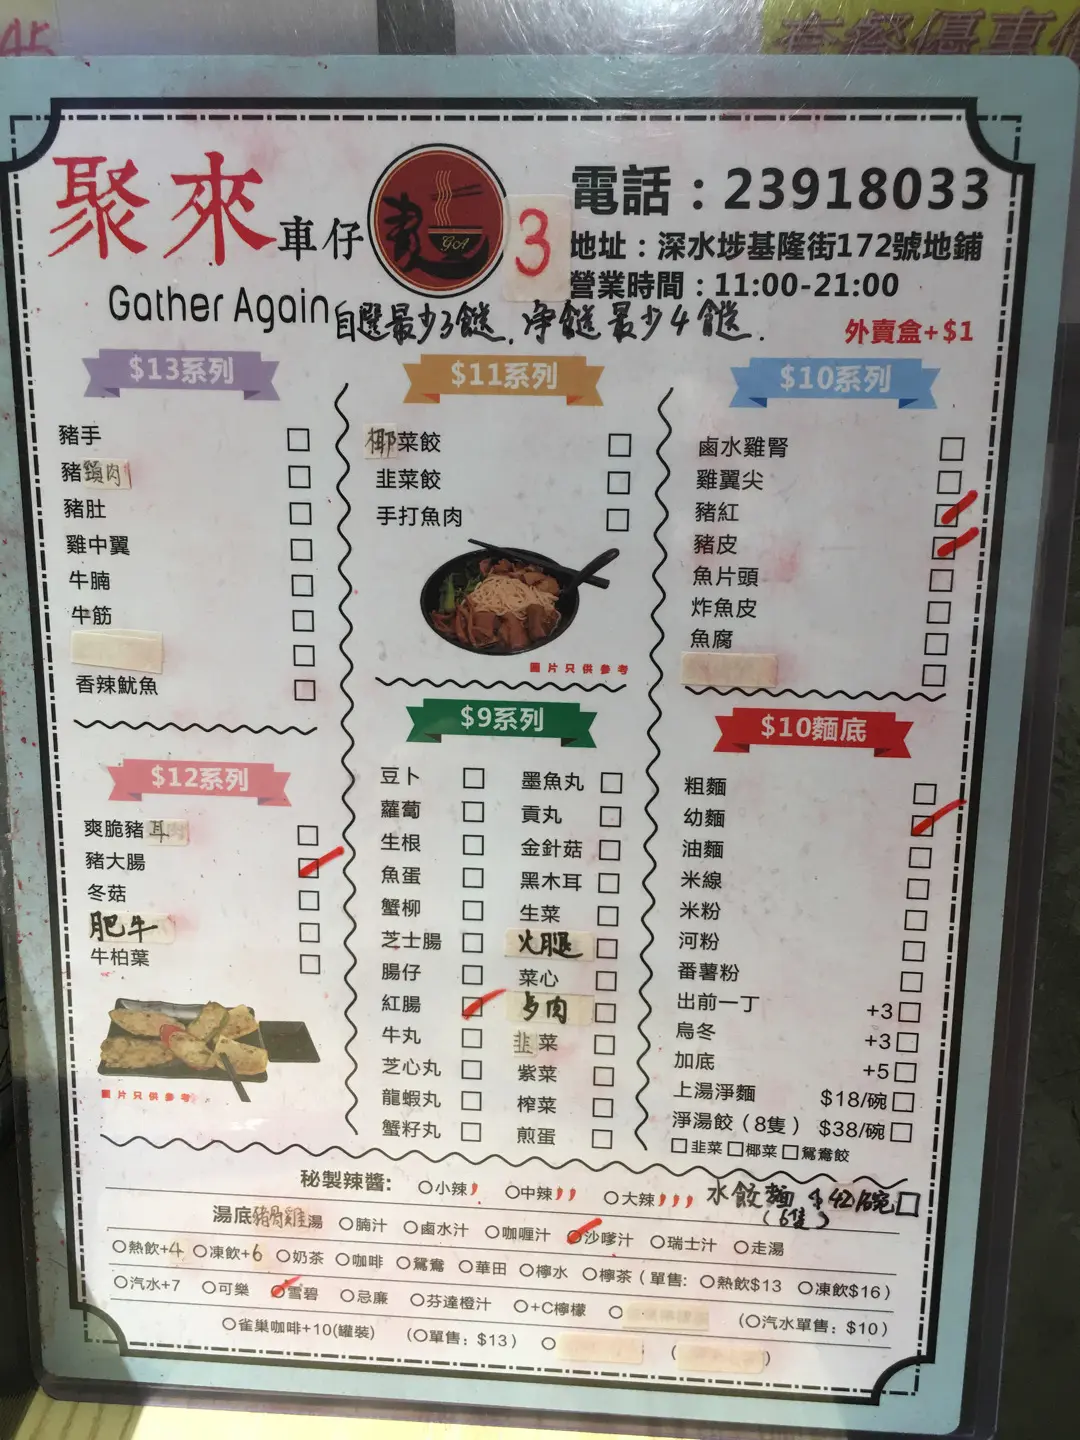 45
套餐優惠價
聚來車仔麵
GA
3
Gather Again
電話：23918033
地址：深水埗基隆街172號地鋪
營業時間：11:00-21:00
自選最少3餸，淨餸最少4餸.
外賣盒+$1
$13系列
豬手
豬頸肉
豬肚
雞中翼
牛腩
牛筋
香辣魷魚
$12系列
爽脆豬耳
豬大腸
冬菇
肥牛
牛柏葉
圖片只供參考
$11系列
椰菜餃
韭菜餃
手打魚肉
圖片只供參考
$9系列
豆卜
蘿蔔
生根
魚蛋
蟹柳
芝士腸
腸仔
紅腸
牛丸
芝心丸
龍蝦丸
蟹籽丸
墨魚丸
貢丸
金針菇
黑木耳
生菜
火腿
菜心
肉
韭菜
紫菜
榨菜
煎蛋
$10系列
鹵水雞腎
雞翼尖
豬紅
豬皮
魚片頭
炸魚皮
魚腐
$10麵底
粗麵
幼麵
油麵
米線
米粉
河粉
番薯粉
出前一丁 +3
烏冬 +3
加底 +5
上湯淨麵 $18/碗
淨湯餃（8隻） $38/碗
韭菜 椰菜 鴛鴦餃
水餃麵 $42/碗
(6隻)
秘製辣醬: 小辣 中辣 大辣
湯底豬骨雞湯 腩汁 鹵水汁 咖喱汁 沙嗲汁 瑞士汁 走湯
熱飲+4 凍飲+6 奶茶 咖啡 鴛鴦 華田 檸水 檸茶（單售: 熱飲$13 凍飲$16）
汽水+7 可樂 雪碧 忌廉 芬達橙汁 +C檸檬 （汽水單售：$10）
雀巢咖啡+10(罐裝) （單售：$13）